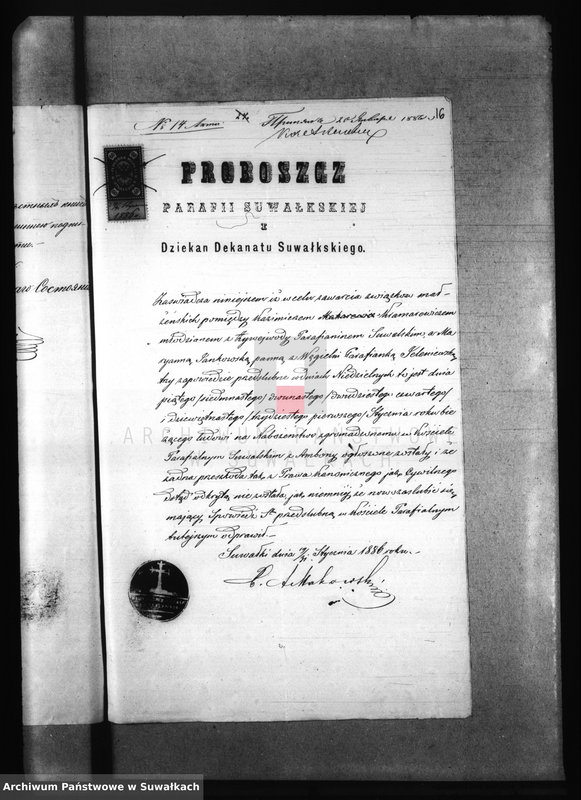 No 14 Anni 24 1886 16
PROBOSZCZ
PARAFII SUWAŁKSKIEJ
I
Dziekan Dekanatu Suwałkskiego.
Zaświadcza niniejszem iż w celu zawarcia związków mał-
żeńskich pomiędzy Kazimierzem Makarewicz Kramarewiczem
młodzianem z Krzywejwody Parafianinem Suwalskim, a Ma-
ryanną Jankowską panną z Węgielni Parafianką Jeleniewską
trzy zapowiedzie przedślubne w dniach Niedzielnych to jest dnia
piątego /siedmnastego/ dwunastego /dwudziestego czwartego/
i dziewiętnastego /trzydziestego pierwszego/ Stycznia roku bie-
żącego ludowi na Nabożeństwo zgromadzonemu w Kościele
Parafialnym Suwalskim z Ambony ogłoszone zostały; i że
żadna przeszkoda tak z Prawa kanonicznego jak Cywilnego
dotąd odkrytą nie została, jak niemniej że nowozaślubić się
mający, Spowiedź Stą przedślubną w Kościele Parafialnym
tutejszym odprawił.
Suwałki dnia 19/31 Stycznia 1886 roku.
A Makowski
ARCHIWUM PAŃSTWOWE
W SUWAŁKACH
Archiwum Państwowe w Suwałkach